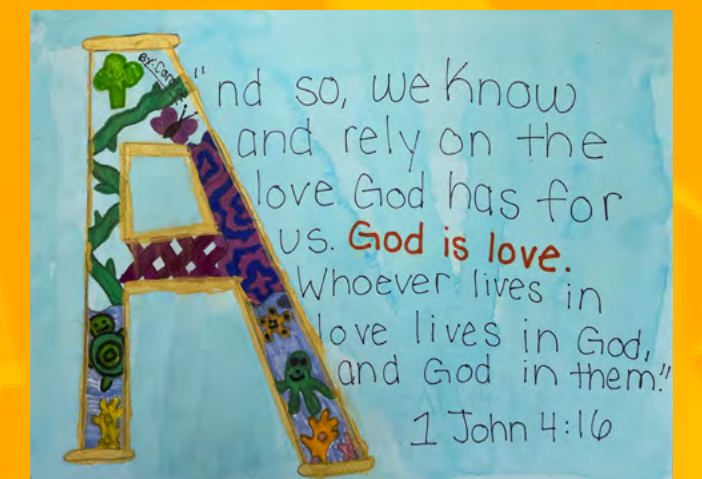 By:
"And so, we know
and rely on the
love God has for
us. God is love.
Whoever lives in
love lives in God,
and God in them."
1 John 4:16